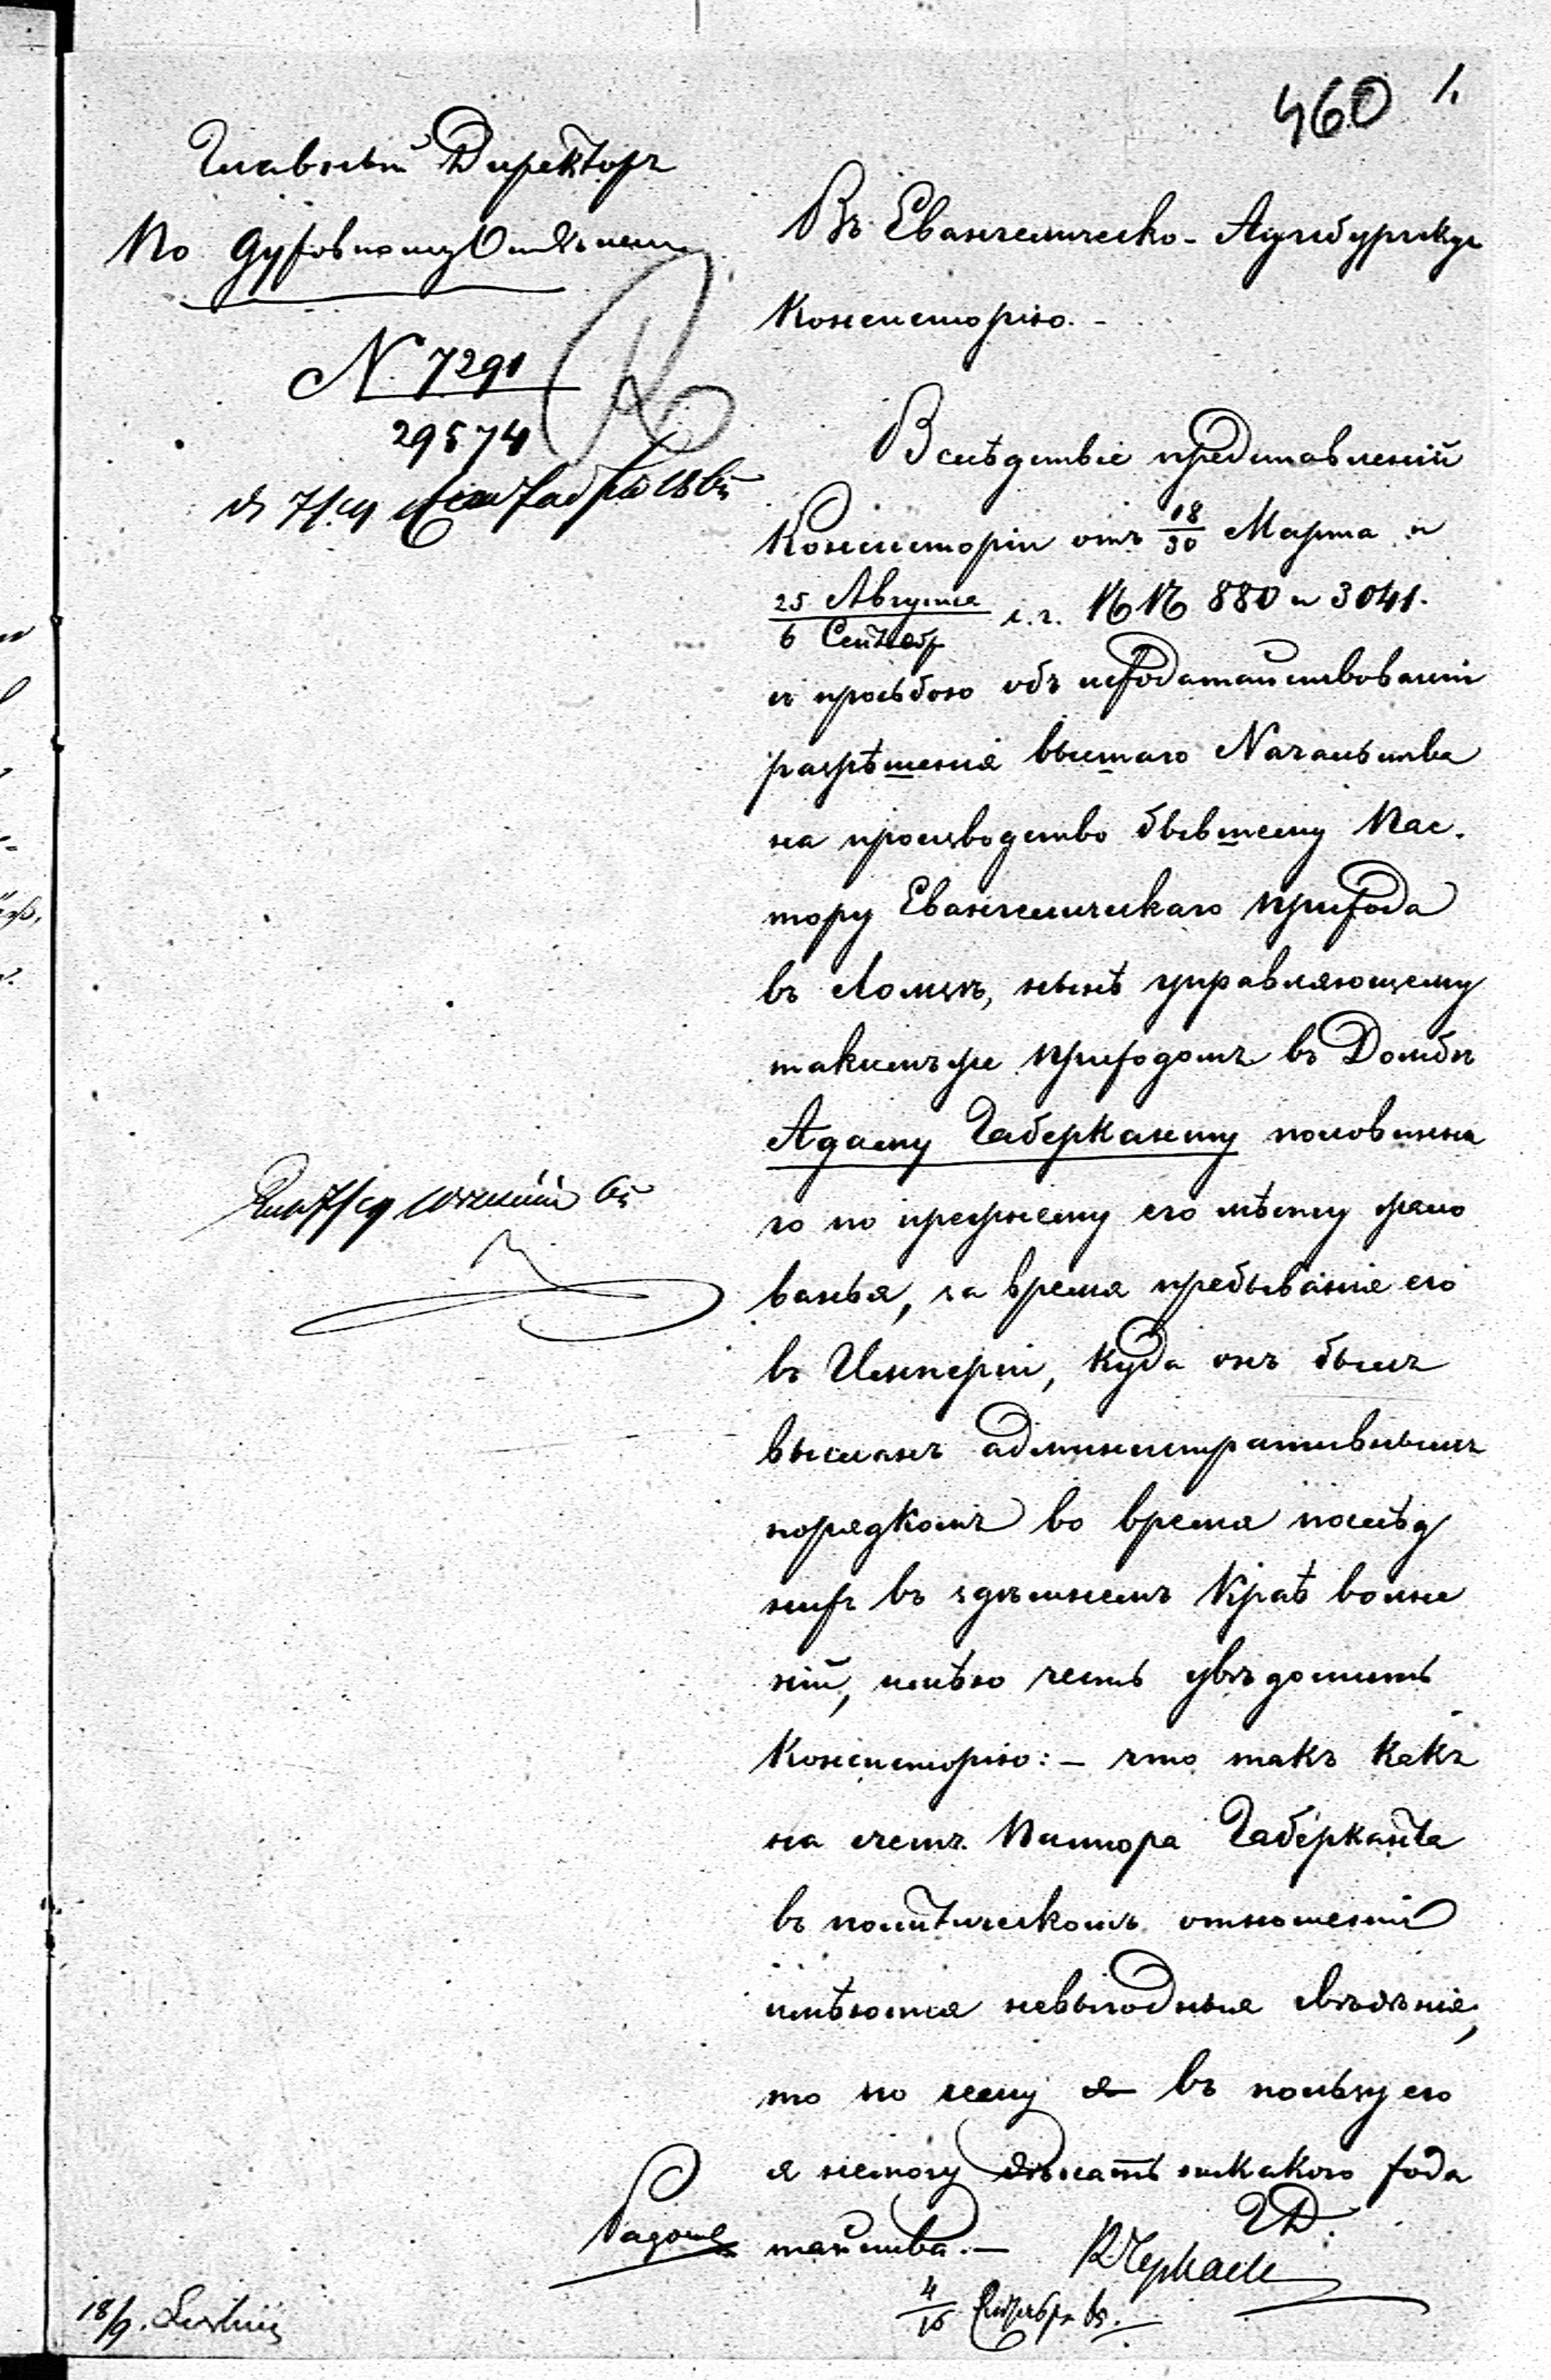 460 1.
Главный Директоръ
по Духовному Отдѣленію
N 7291
29574
Въ Евангелическо-Аугсбургскую
Консисторію.-
Вслѣдствіе представленій
Консисторіи отъ 18/30 Марта и
25 Августа / 6 Сентябр с.г. №№ 880 и 3041.
съ просьбою объ исходатайствованіи
разрѣшенія высшаго Начальства
на производство бывшему Пас-
тору Евангелическаго прихода
въ Ломзѣ, нынѣ управляющему
такимъ же приходомъ въ Домбѣ
Адаму Габерканту половинна
го по прежнему его мѣсту жало
ванья, за время пребыванія его
въ Имперіи, куда онъ былъ
высланъ административнымъ
порядкомъ во время послѣд
нихъ въ здѣшнемъ Краѣ волне
ній, имѣю честь увѣдомить
Консисторію: - что такъ какъ
на счетъ Пастора Габерканта
въ политическомъ отношеніи
имѣются невыгодныя свѣдѣнія,
то по сему я въ пользу его
я немогу дѣлать никакого хода
тайства.-
ГД.
В Черкаск
4/16 Сентября 65.
18/9.